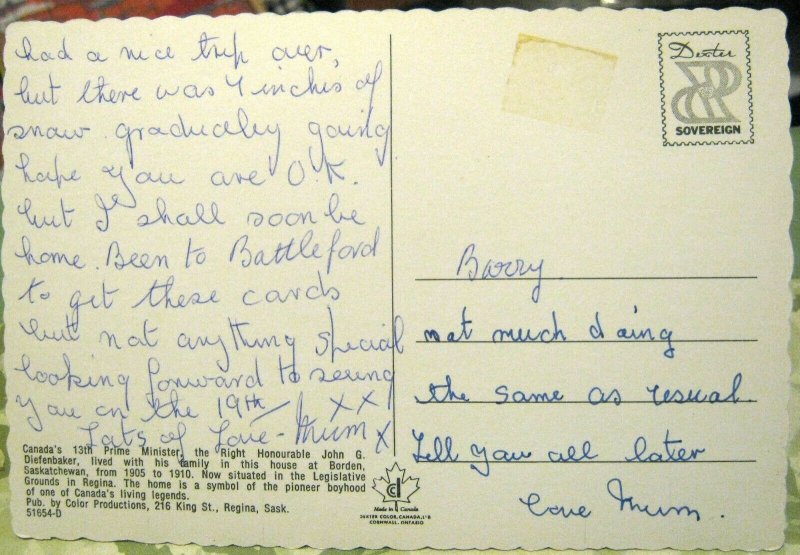 had a nice trip over,
but there was 4 inches of
snow gradualey going
hope you are O.K.
but I shall soon be
home. Been to Battleford
to get these cards
but not anything special
looking forward to seeing
you on the 19th / XX
Lots of Love - Mum X
Canada's 13th Prime Minister, the Right Honourable John G.
Diefenbaker, lived with his family in this house at Borden,
Saskatchewan, from 1905 to 1910. Now situated in the Legislative
Grounds in Regina. The home is a symbol of the pioneer boyhood
of one of Canada's living legends.
Pub. by Color Productions, 216 King St., Regina, Sask.
51654-D
Made in Canada
DEXTER COLOR, CANADA, LTD
CORNWALL, ONTARIO
Dexter
SOVEREIGN
Barry
not much doing
the same as usual.
Tell you all later
Love Mum.